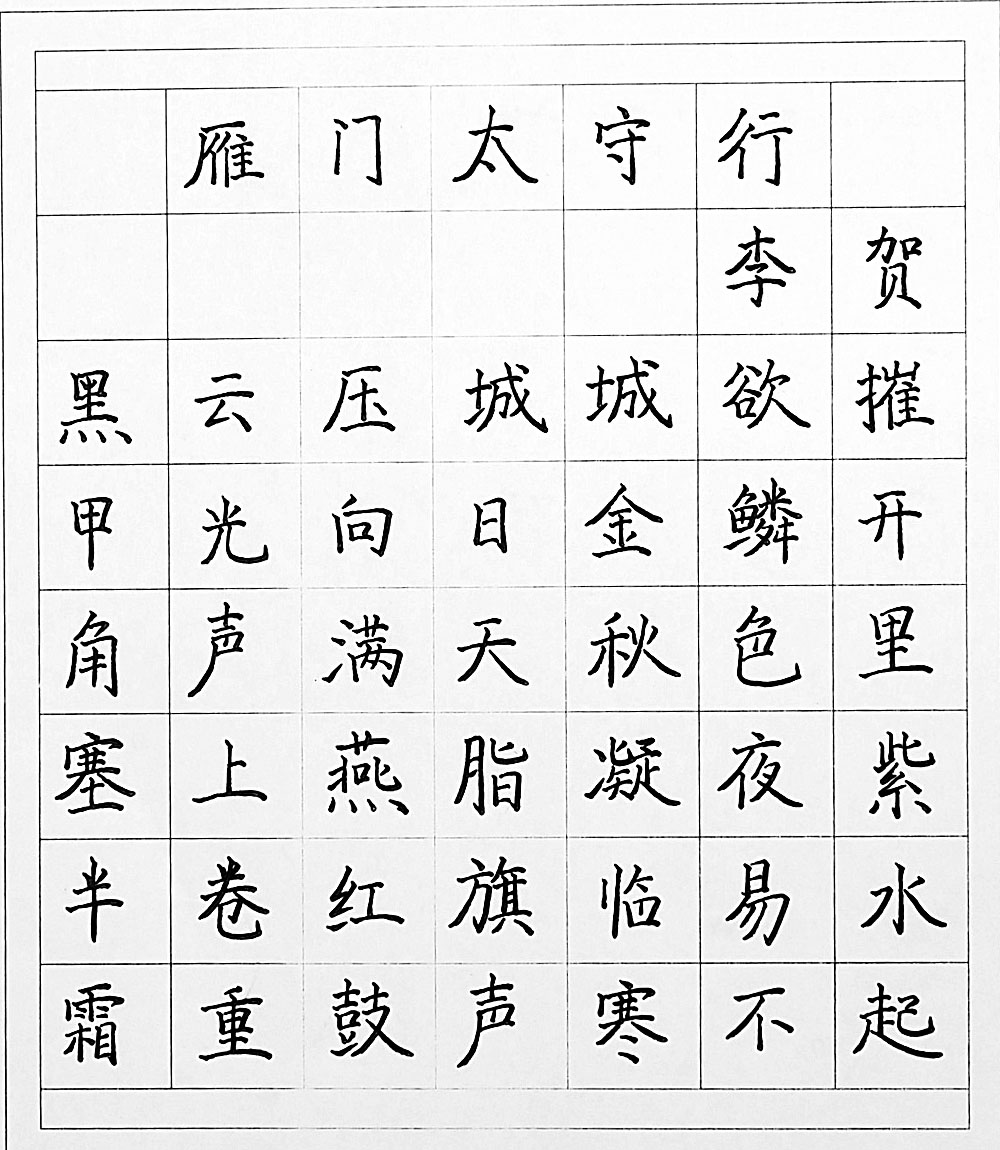 雁门太守行
李贺
黑云压城城欲摧
甲光向日金鳞开
角声满天秋色里
塞上燕脂凝夜紫
半卷红旗临易水
霜重鼓声寒不起